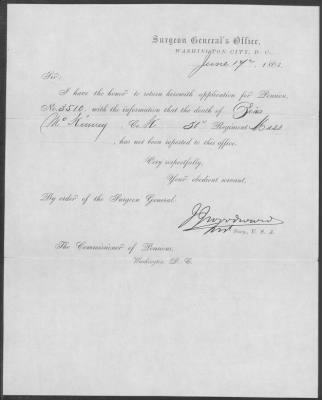 Surgeon General's Office,
WASHINGTON CITY, D. C.,
June 17th, 1863.
Sir:
I have the honor to return herewith application for Pension,
No. 5510, with the information that the death of
McKinney, Co. K 51st Regiment Mass
, has not been reported to this office.
Very respectfully,
Your obedient servant,
By order of the Surgeon General:
J J Woodward
Surg., U. S. A.
The Commissioner of Pensions,
Washington, D. C.